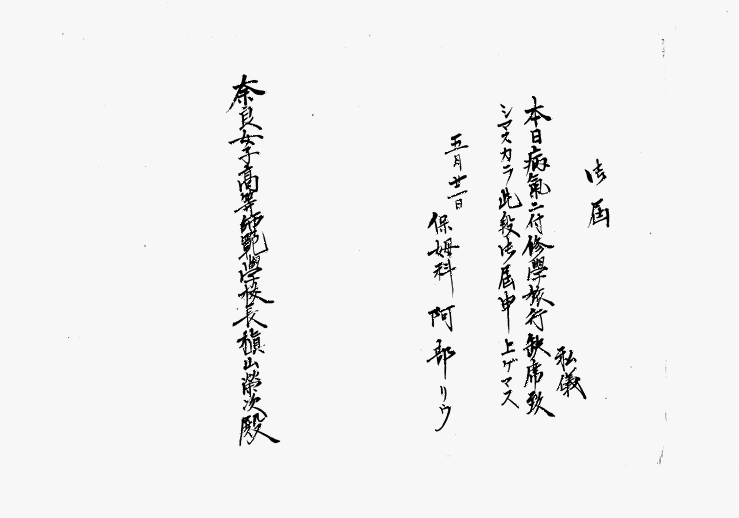 御届
私儀
本日病氣ニ付修學旅行缺席致
シマスカラ此段御届申上ゲマス
五月廿一日
保姆科 阿部リウ
奈良女子高等師範學校長槇山榮次殿